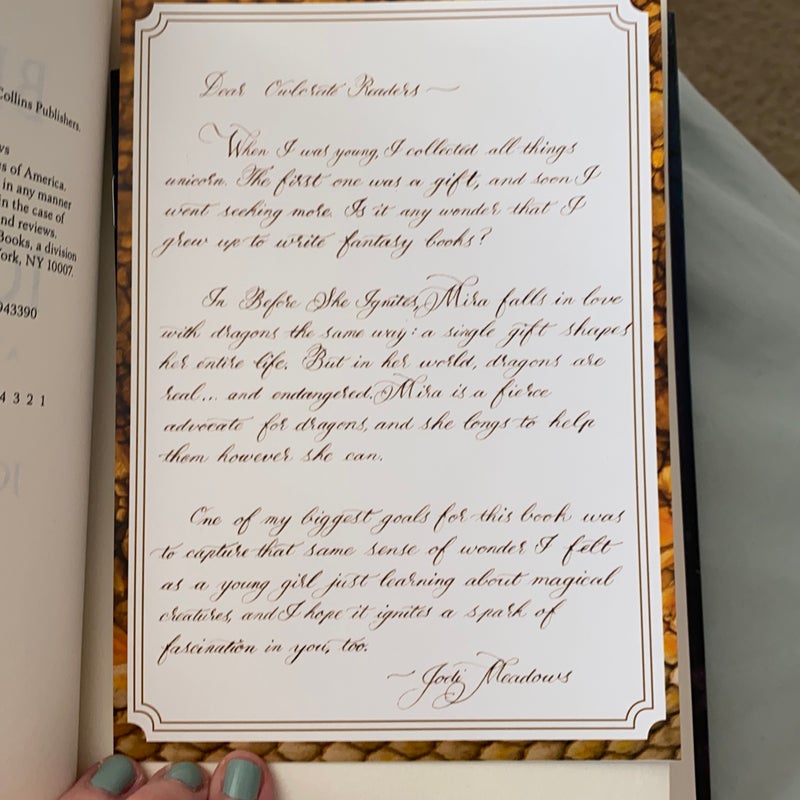 Collins Publishers.
ws
es of America.
in any manner
in the case of
nd reviews.
Books, a division
York, NY 10007.
943390
4 3 2 1
Dear Owlcrate Readers ~
When I was young, I collected all things
unicorn. The first one was a gift, and soon I
went seeking more. Is it any wonder that I
grew up to write fantasy books?
In Before She Ignites, Mira falls in love
with dragons the same way: a single gift shapes
her entire life. But in her world, dragons are
real... and endangered. Mira is a fierce
advocate for dragons, and she longs to help
them however she can.
One of my biggest goals for this book was
to capture that same sense of wonder I felt
as a young girl just learning about magical
creatures, and I hope it ignites a spark of
fascination in you, too.
~ Jodi Meadows